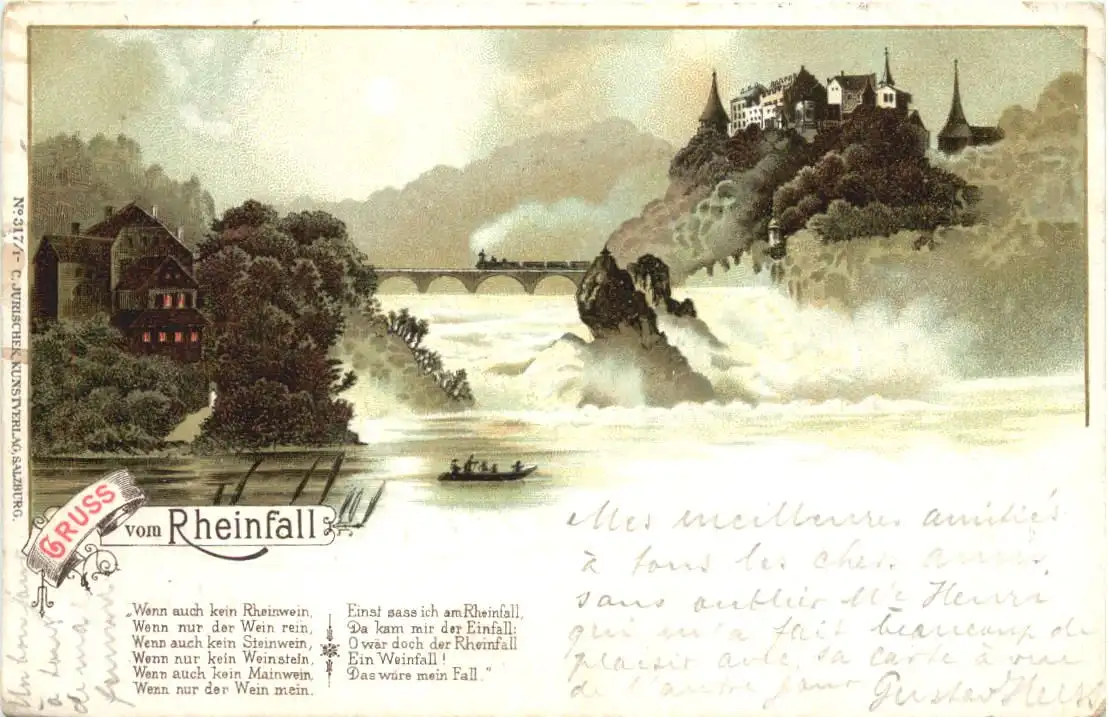 No. 317/1 - C. JURISCHEK, KUNSTVERLAG, SALZBURG.
GRUSS
vom Rheinfall
„Wenn auch kein Rheinwein,
Wenn nur der Wein rein,
Wenn auch kein Steinwein,
Wenn nur kein Weinstein,
Wenn auch kein Mainwein,
Wenn nur der Wein mein.
Einst sass ich am Rheinfall,
Da kam mir der Einfall:
O wär doch der Rheinfall
Ein Weinfall!
Das wäre mein Fall."
Mes meilleures amitiés
à tous les chers amis,
sans oublier Mr Henri
qui m'a fait beaucoup de
plaisir avec sa carte à vue
de l'autre jour Gustav
Un bon
à
de ma